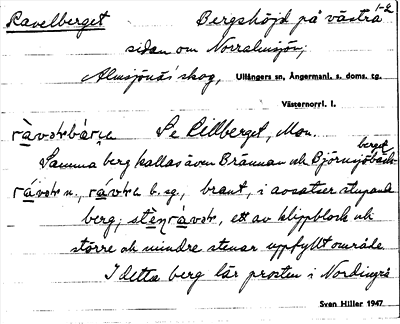 Ravelberget Bergshöjd på västra 1-2
sidan om Norralmsjön;
Almsjönäs' skog, Ullångers sn, Ångermanl. s. doms. tg.
Västernorrl. l.
Se Lidberget, Mon.
Samma berg kallas även Brännan och Björnsjöbackberget
n., b. sg., brant, i avsatser stupande
berg; ett av klippblock och
större och mindre stenar uppfyllt område
I detta berg lär prosten i Nordingrå
Sven Hiller 1947